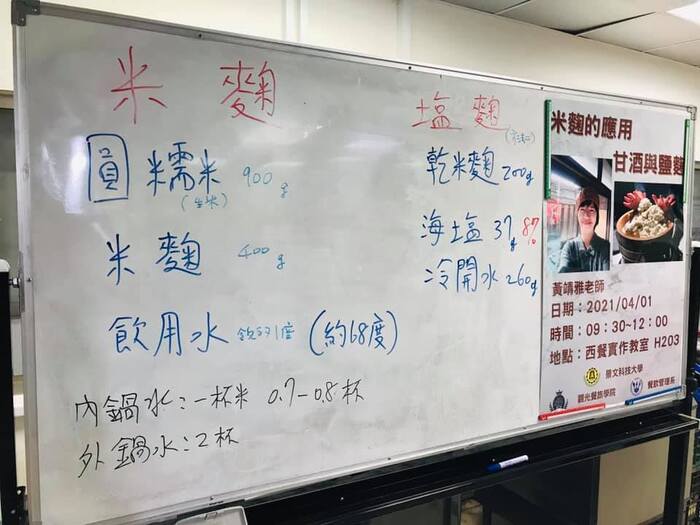 米麴
圓糯米 900g
(生米)
米麴 400g
飲用水 (約68度)
內鍋水:一杯米 0.7-0.8杯
外鍋水:2杯
塩麴
乾米麴 200g
海塩 37g 8%
冷開水 260g
米麴的應用
甘酒與鹽麴
黃靖雅老師
日期:2021/04/01
時間:09:30~12:00
地點:西餐實作教室 H203
景文科技大學
觀光餐旅學院 餐飲管理系